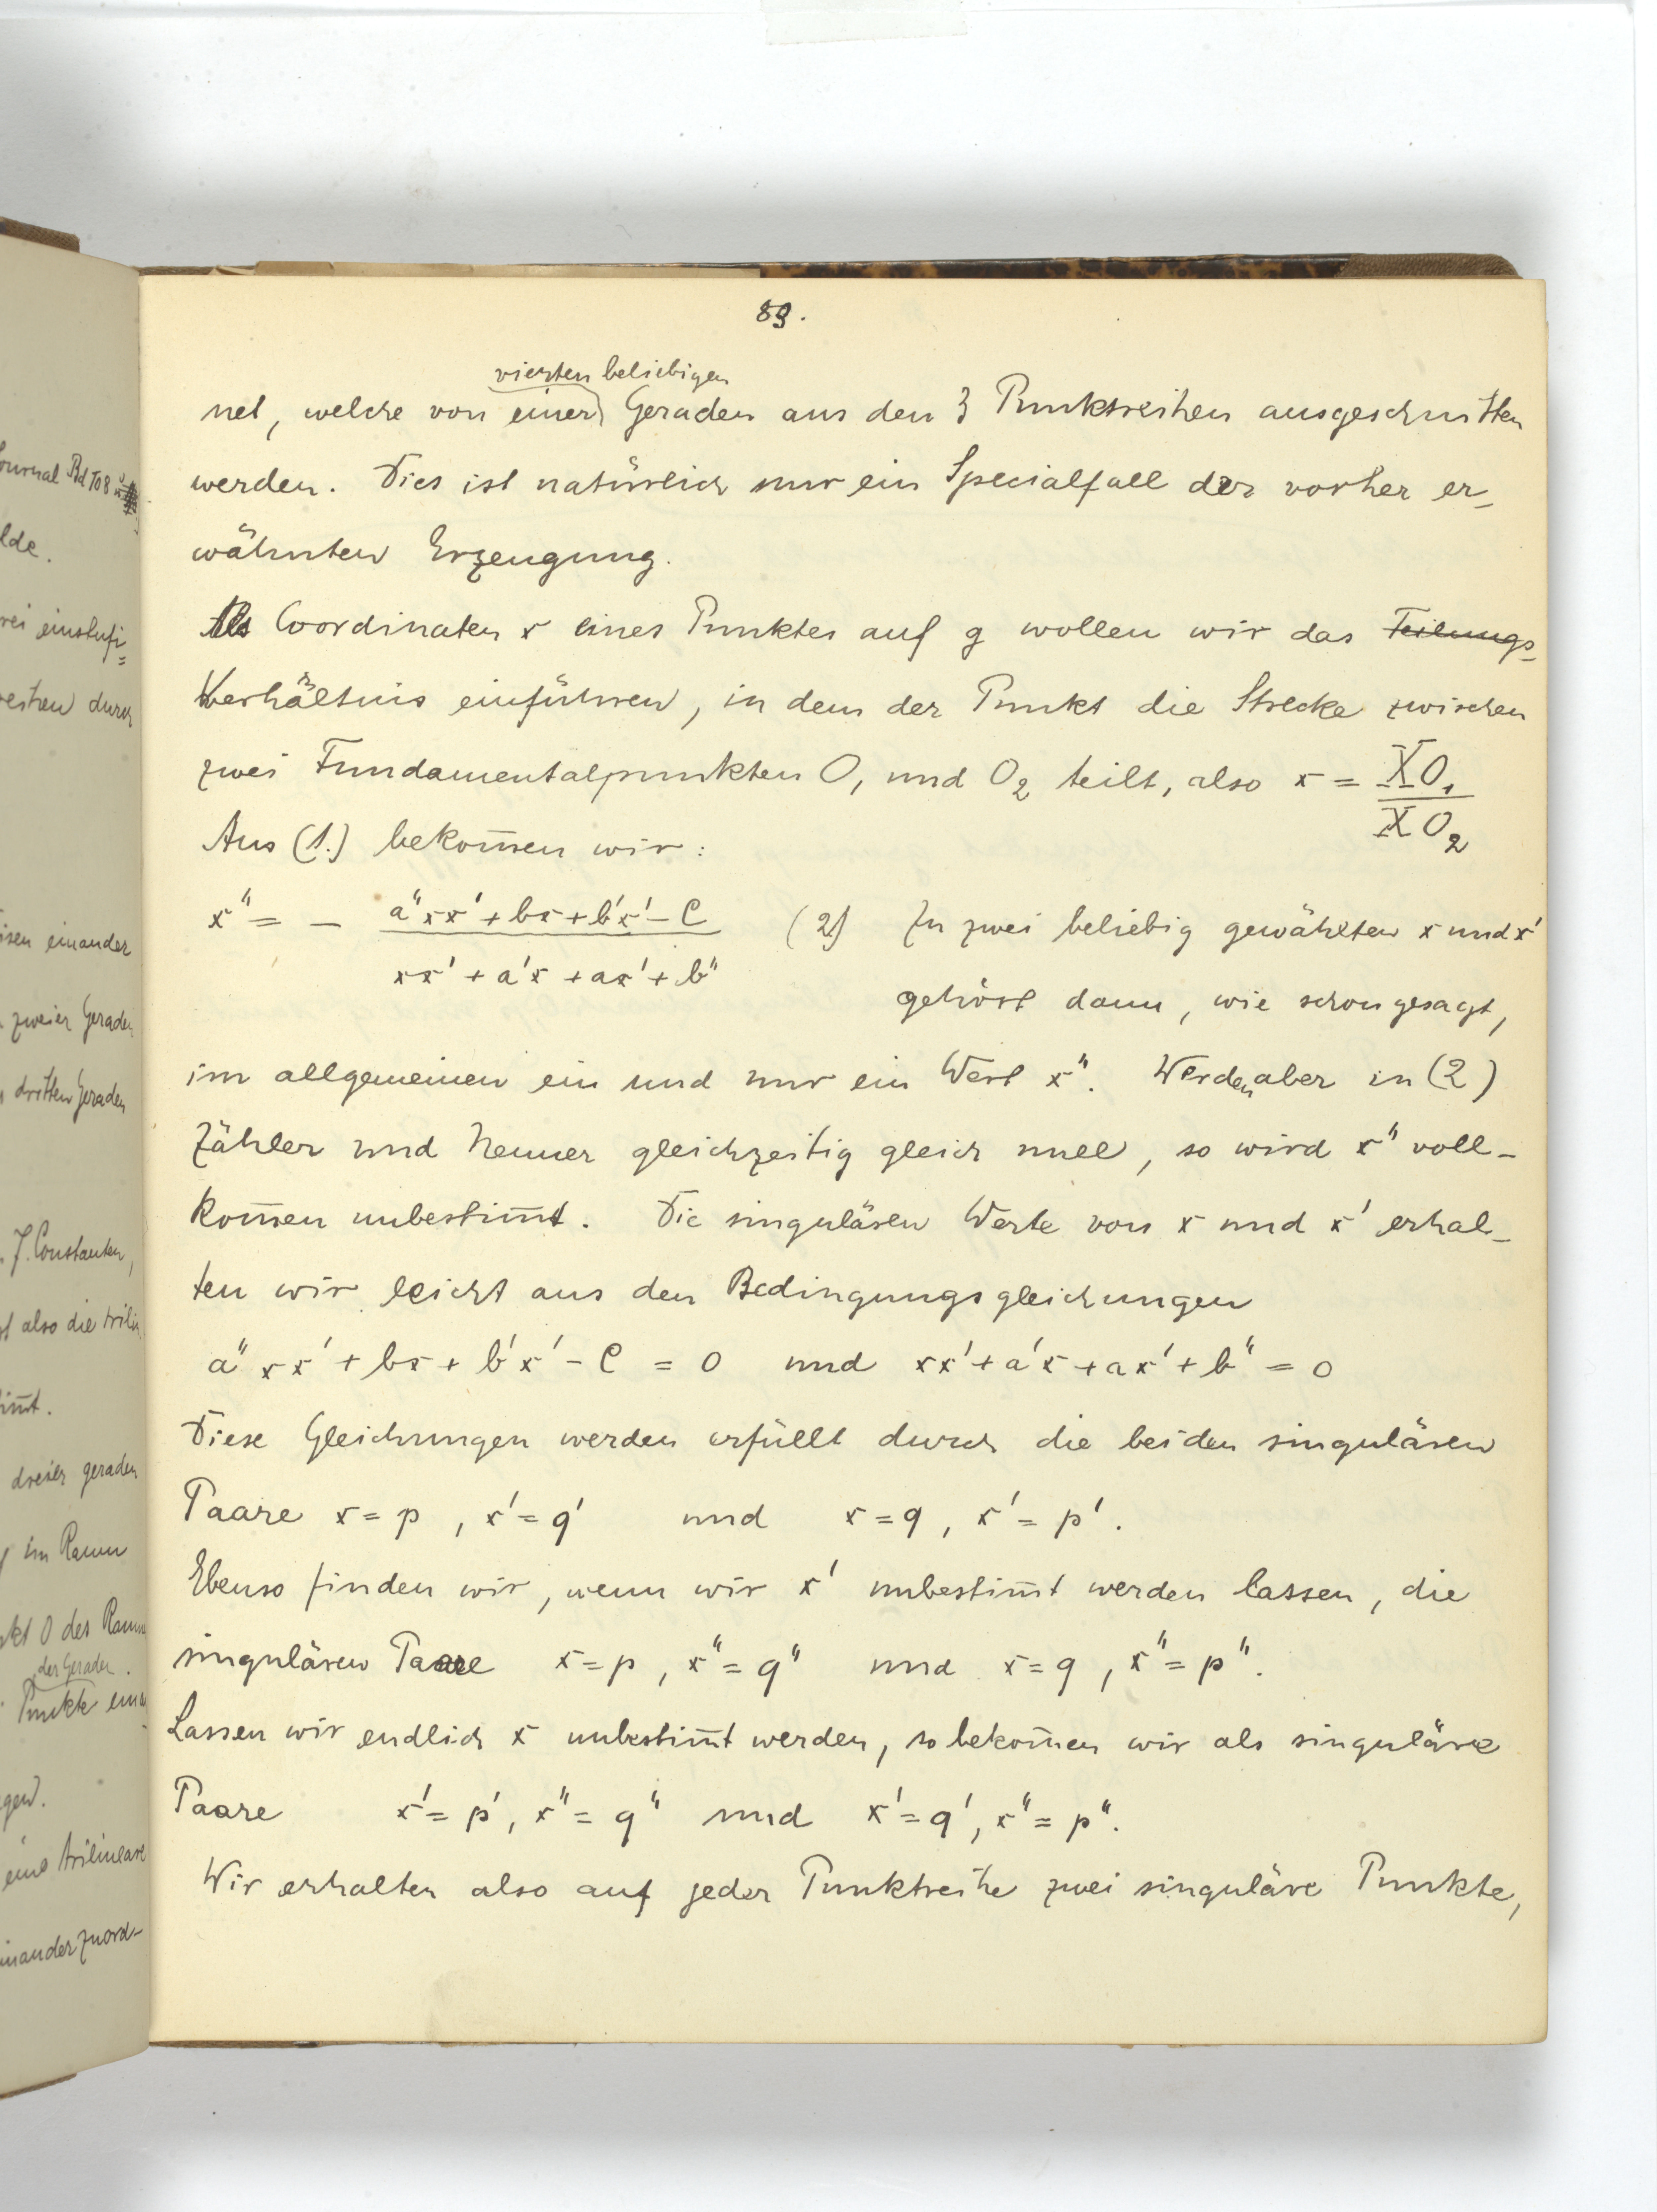 89.
vierten beliebigen
net, welche von einer Geraden aus den 3 Punktreihen ausgeschnitten
werden. Dies ist natürlich nur ein Specialfall der vorher er-
wähnten Erzeugung.
Als Coordinaten x eines Punktes auf g wollen wir das Teilungs-
Verhältnis einführen, in dem der Punkt die Strecke zwischen
zwei Fundamentalpunkten O₁ und O₂ teilt, also x = XO₁ / XO₂
Aus (1.) bekom̅en wir:
x" = - (a"xx' + bx + b'x' - C) / (xx' + a'x + ax' + b") (2) Zu zwei beliebig gewählten x und x'
gehört dann, wie schon gesagt,
im allgemeinen ein und nur ein Wert x". Werden aber in (2)
Zähler und Nenner gleichzeitig gleich null, so wird x" voll-
kom̅en unbestim̅t. Die singulären Werte von x und x' erhal-
ten wir leicht aus den Bedingungsgleichungen
a"xx' + bx + b'x' - C = 0 und xx' + a'x + ax' + b" = 0
Diese Gleichungen werden erfüllt durch die beiden singulären
Paare x = p, x' = q' und x = q, x' = p'.
Ebenso finden wir, wenn wir x' unbestim̅t werden lassen, die
singulären Paare x = p, x" = q" und x = q, x" = p".
Lassen wir endlich x unbestim̅t werden, so bekom̅en wir als singuläre
Paare x' = p', x" = q" und x' = q', x" = p".
Wir erhalten also auf jeder Punktreihe zwei singuläre Punkte,
Journal Bd 108
lde.
rei einstufi=
reihen durch
isen einander
zweier Geraden
dritten Geraden
J. Constanten,
also die trilin
im̅t.
dreier geraden
im Raum
kt O des Raum
der Geraden.
Punkte einer
gen.
eine trilineare
einander zuord-